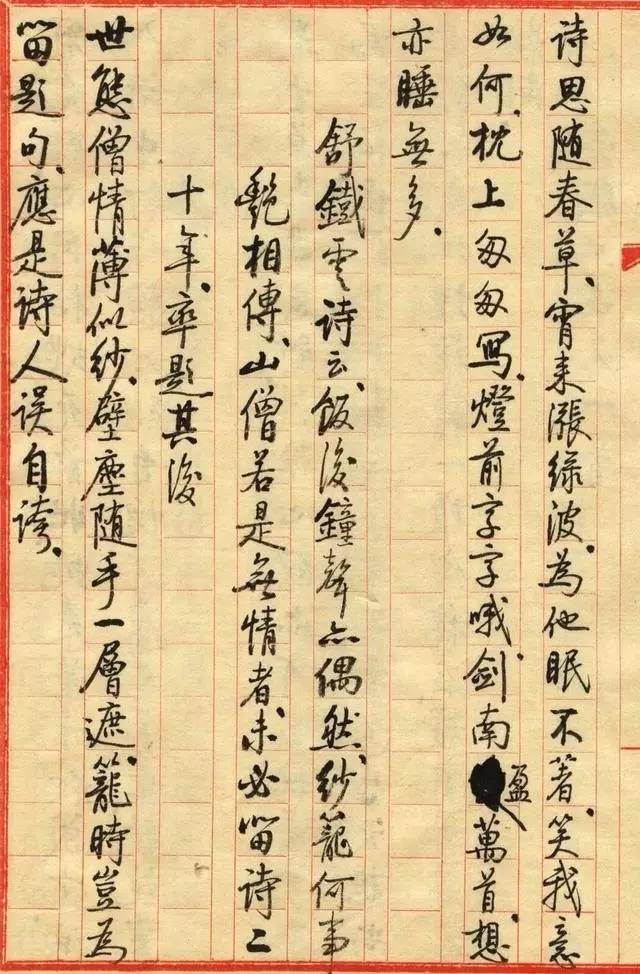 詩思随春草、宵来漲绿波、為他眠不著、笑我意
如何、枕上匆匆寫、燈前字字哦、剑南盈萬首、想
亦睡無多、
舒鐵雲詩云、飯後鐘聲亦偶然、纱籠何事
艷相傳、山僧若是無情者、未必留诗二
十年、率題其後
世態僧情薄似紗、壁塵随手一層遮、籠時豈為
留题句、應是诗人误自誇、